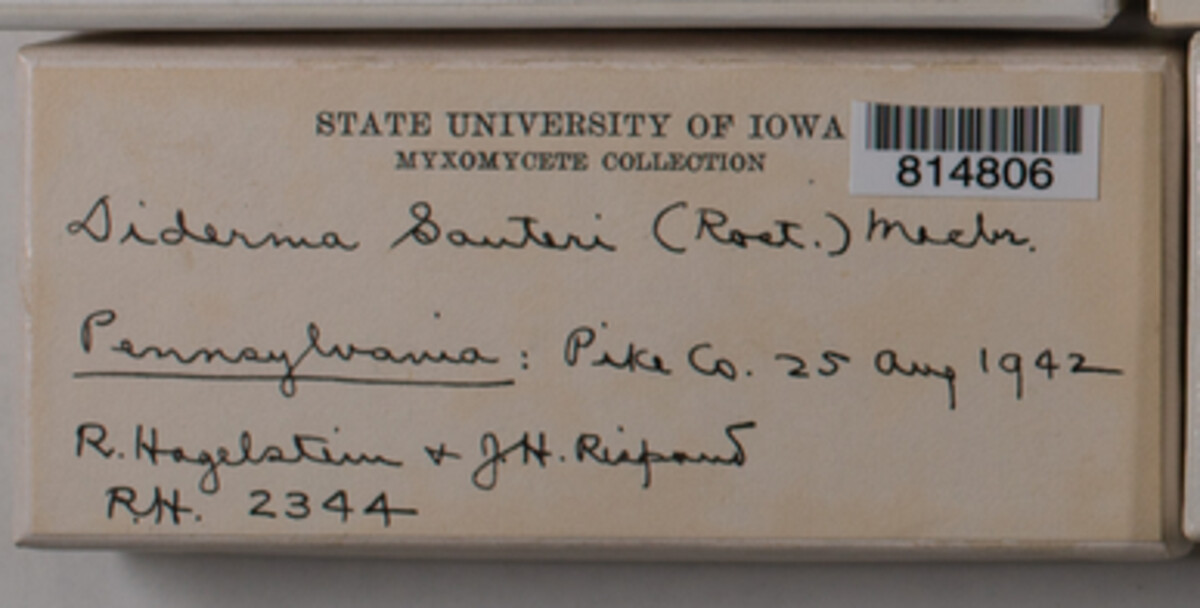 STATE UNIVERSITY OF IOWA
MYXOMYCETE COLLECTION
814806
Diderma Sauteri (Rost.) Macbr.
Pennsylvania: Pike Co. 25 Aug 1942
R. Hagelstein & J.H. Rispaud
R.H. 2344